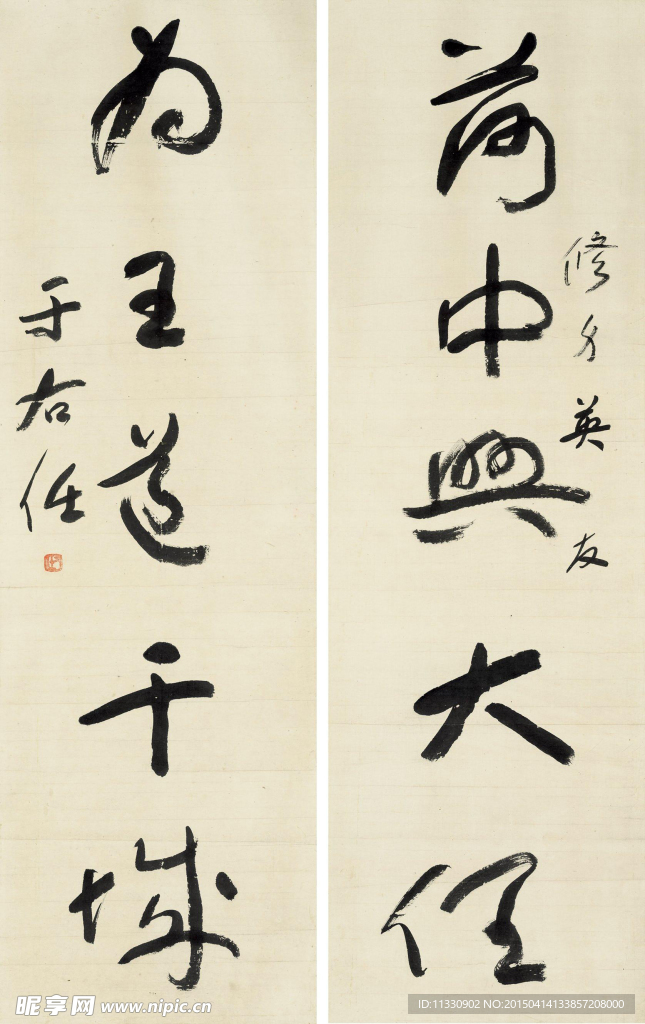 荷中興大任
修于英友
为王道干城
于右任
昵享网 www.nipic.cn
ID:11330902 NO:20150414133857208000